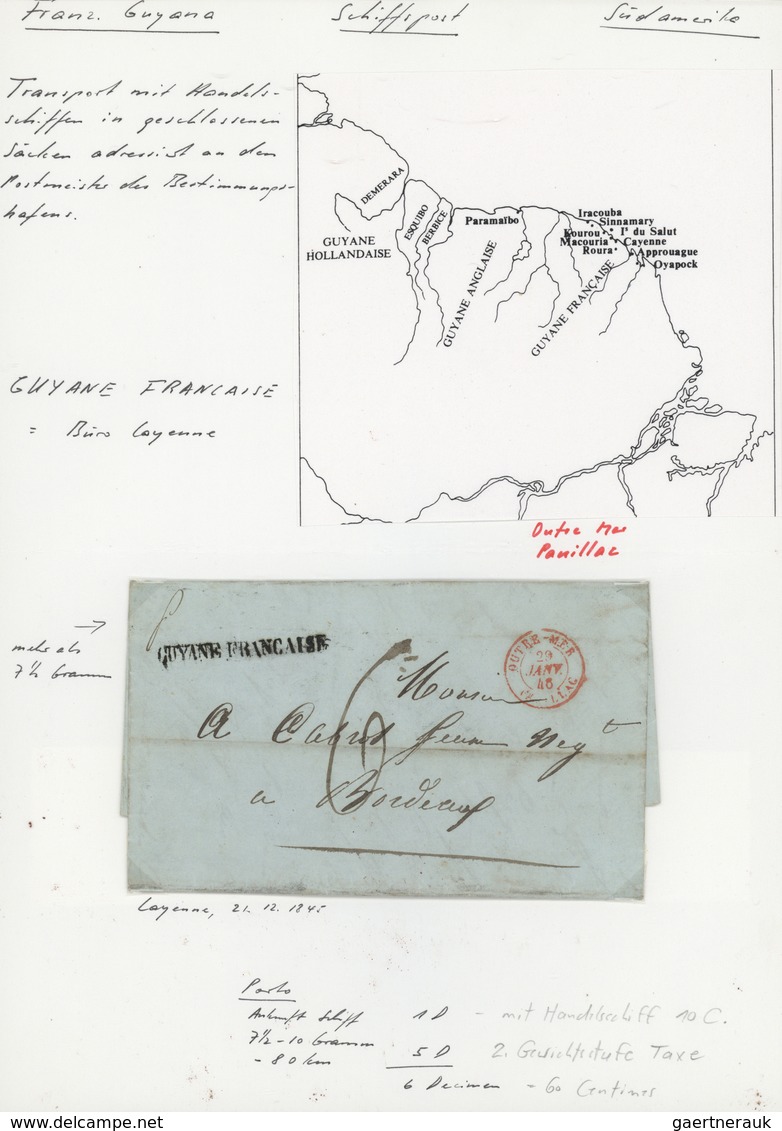 Franz. Guyana Schiffspost Südamerika
Transport mit Handels-
schiffen in geschlossenen
Säcken adressirt an den
Postmeister des Bestimmungs-
hafens.
DEMERARA
ESQUIBO
BERBICE
GUYANE
HOLLANDAISE
Paramaïbo
GUYANE ANGLAISE
GUYANE FRANÇAISE
Iracouba
Sinnamary
Kourou Iˢ du Salut
Macouria Cayenne
Roura Approuague
Oyapock
GUYANE FRANCAISE
= Büro Cayenne
Outre Mer
Pauillac
mehr als
7½ Gramm
GUYANE FRANCAISE
OUTRE-MER
29
JANV.
46
Monsieur
A Cabrit Jeune Negᵗ
6
a Bordeaux
Cayenne, 21. 12. 1845
Porto
Ankunft Schiff 1 D - mit Handelsschiff 10 C.
7½ - 10 Gramm
- 80 km 5 D 2. Gewichtsstufe Taxe
6 Decimen = 60 Centimes
gaertnerauk